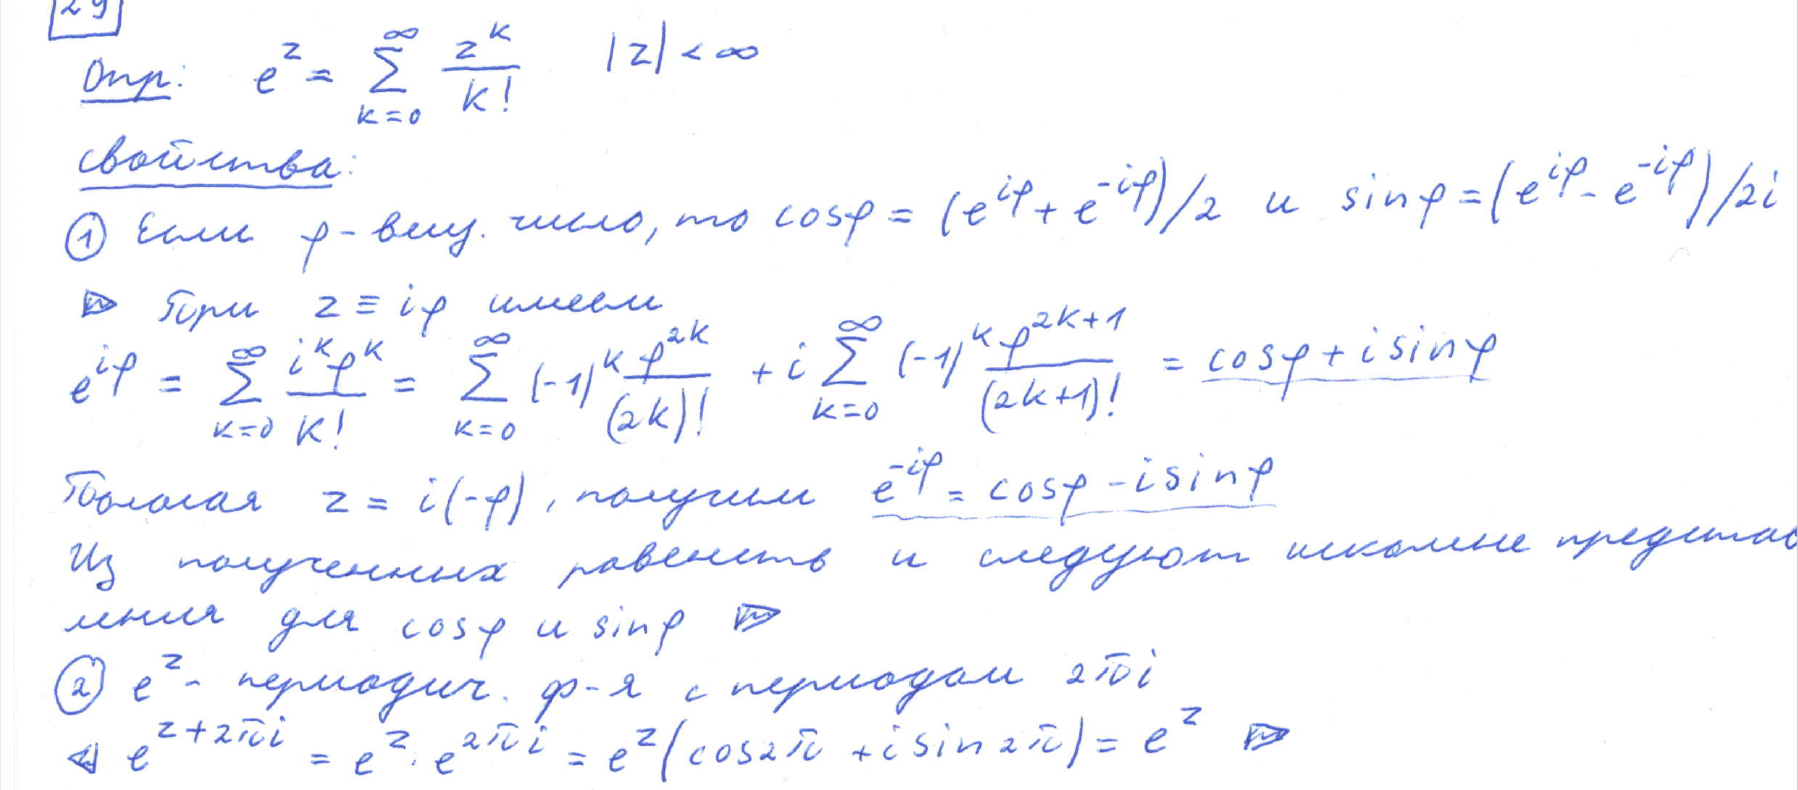 29
Опр: e^z = ∑_{k=0}^{∞} z^k / k!   |z| < ∞
свойства:
① Если φ - вещ. число, то cosφ = (e^{iφ} + e^{-iφ})/2 и sinφ = (e^{iφ} - e^{-iφ})/2i
▷ При z ≡ iφ имеем
e^{iφ} = ∑_{k=0}^{∞} i^k φ^k / k! = ∑_{k=0}^{∞} (-1)^k φ^{2k} / (2k)! + i ∑_{k=0}^{∞} (-1)^k φ^{2k+1} / (2k+1)! = cosφ + i sinφ
Полагая z = i(-φ), получим e^{-iφ} = cosφ - i sinφ
Из полученных равенств и следуют искомые представ
ления для cosφ и sinφ ▷
② e^z - периодич. ф-я с периодом 2πi
◁ e^{z+2πi} = e^z · e^{2πi} = e^z (cos2π + i sin2π) = e^z ▷